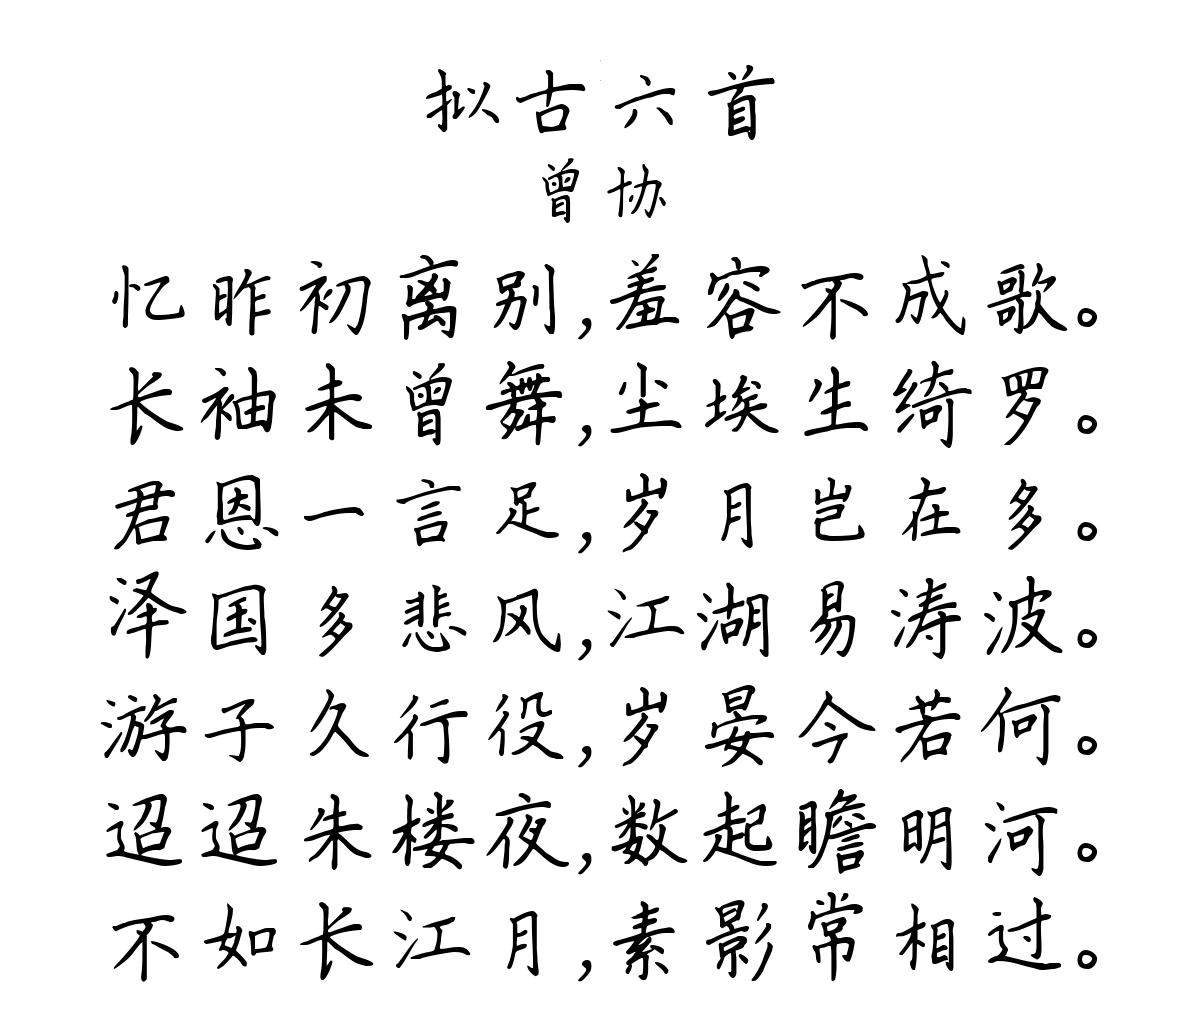 拟古六首
曾协
忆昨初离别,羞容不成歌。
长袖未曾舞,尘埃生绮罗。
君恩一言足,岁月岂在多。
泽国多悲风,江湖易涛波。
游子久行役,岁晏今若何。
迢迢朱楼夜,数起瞻明河。
不如长江月,素影常相过。